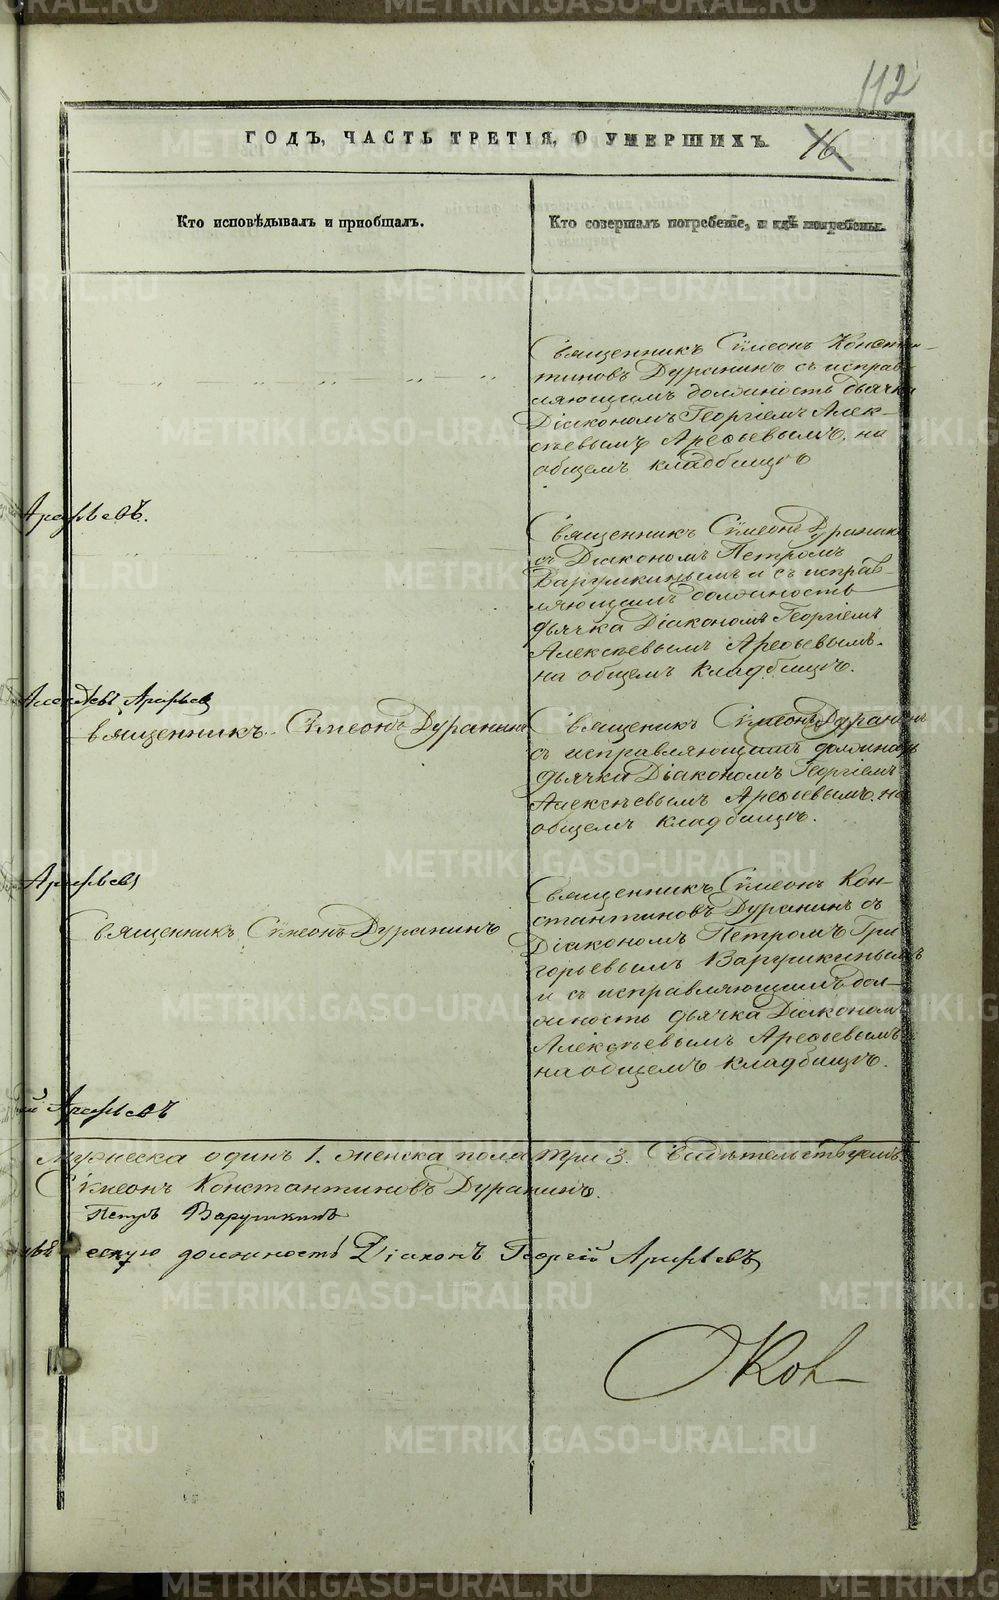 112
ГОДЪ, ЧАСТЬ ТРЕТІЯ, О УМЕРШИХЪ.
16
Кто исповѣдывалъ и приобщалъ.
Кто совершалъ погребеніе, и гдѣ погребены.
Священникъ Сѷмеонъ Констан-
тиновъ Дуранинъ съ исправ-
ляющимъ должность дьячка
Діакономъ Георгіемъ Алек-
сѣевымъ Арефьевымъ. на
общемъ кладбищѣ
Арефьевъ.
Священникъ Сѷмеонъ Дуранинъ
съ Діакономъ Петромъ
Варушкинымъ и съ исправ-
ляющимъ должность
дьячка Діакономъ Георгіемъ
Алексѣевымъ Арефьевымъ.
на общемъ кладбищѣ.
Алексѣевъ Арефьевъ
Священникъ Сѷмеонъ Дуранинъ
Священикъ Сѷмеонъ Дуранинъ
съ исправляющимъ должность
дьячка Діакономъ Георгіемъ
Алексѣевымъ Арефьевымъ. на
общемъ кладбищѣ.
Арефьевъ
Священникъ Сѷмеонъ Дуранинъ
Священникъ Сѷмеонъ Кон-
стантиновъ Дуранинъ съ
Діакономъ Петромъ Гри
горьевымъ Варушкинымъ
и съ исправляющимъ дол-
жность дьячка Діакономъ
Алексѣевымъ Арефьевымъ
на общемъ кладбищѣ.
й Арефьевъ
Мужеска одинъ 1. женска пола три 3. Свидѣтельствуемъ.
Сѷмеонъ Константиновъ Дуранинъ.
Петръ Варушкинъ
ескую должность Діаконъ Георгій Арефьевъ
METRIKI.GASO-URAL.RU